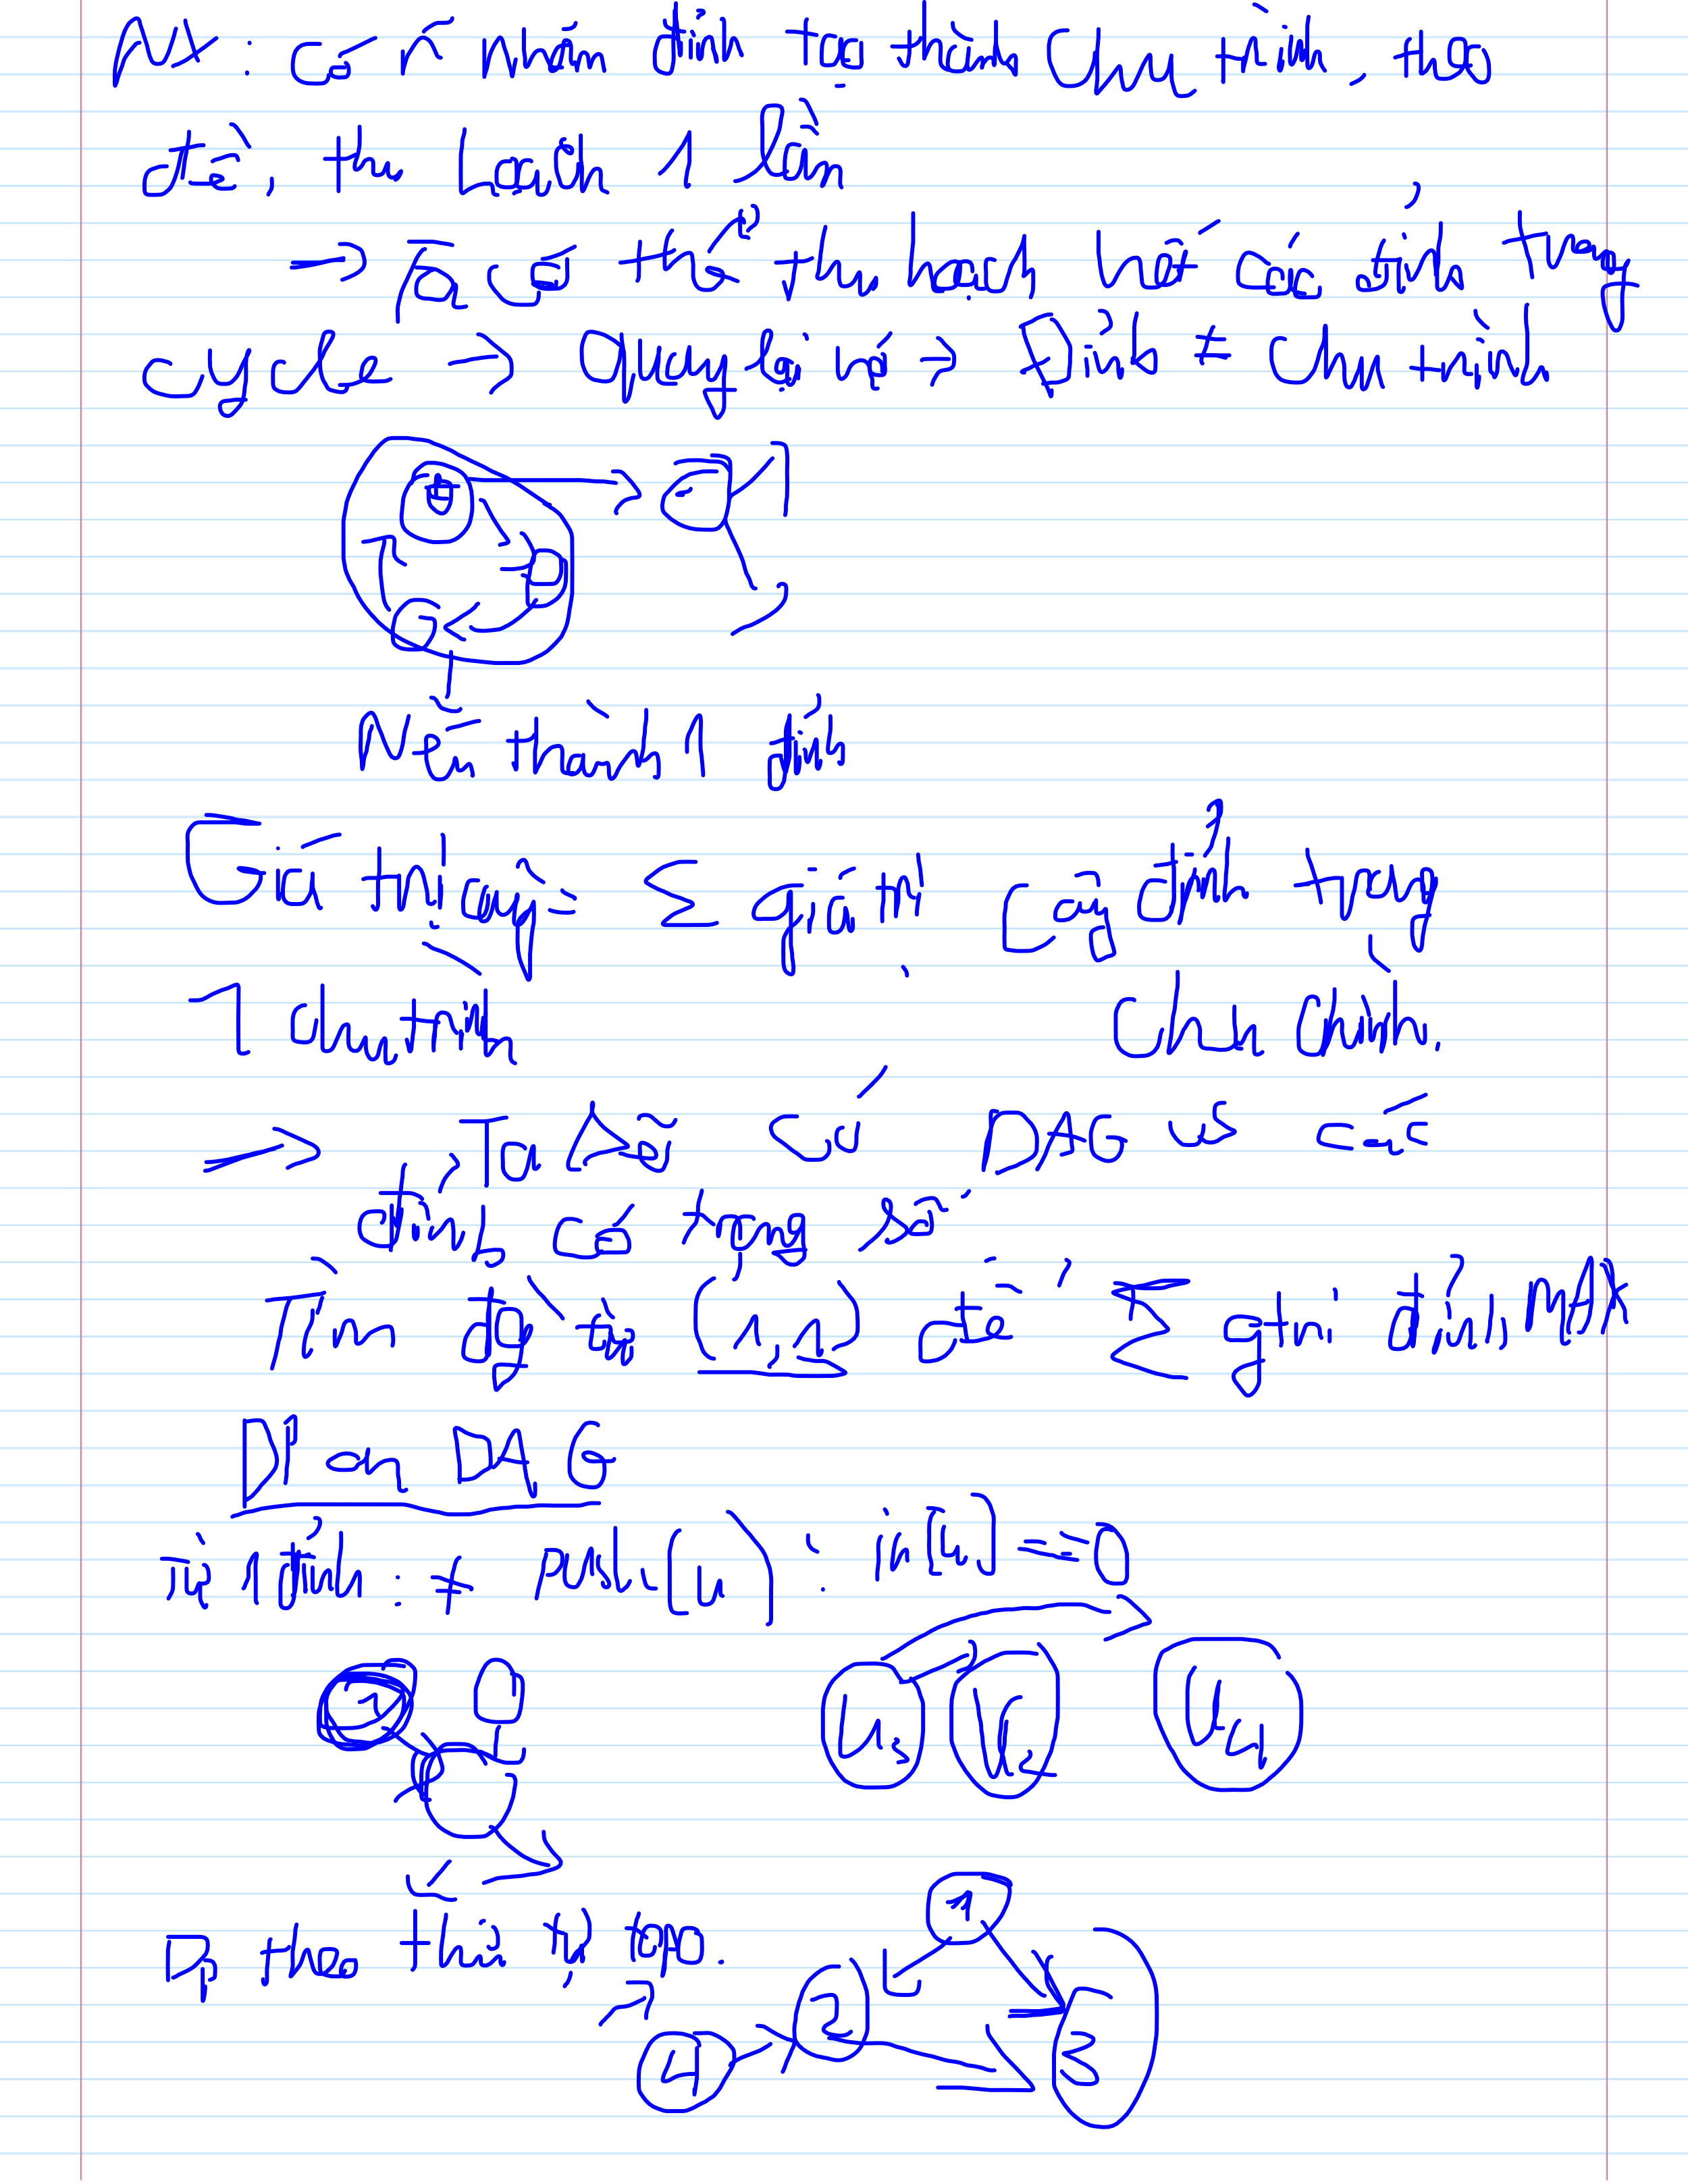 NX: các nhóm đỉnh tạo thành chu trình, theo
đề, thu hoạch 1 lần
=> Ta có thể thu hoạch hết các đỉnh trong
cycle -> Quay lại nó => Đỉnh ≠ chu trình
Nén thành 1 đỉnh
Giá trị = Σ giá trị các đỉnh trong
1 chu trình chu trình.
=> Ta sẽ có DAG vs các
đỉnh có trọng số
Tìm đg từ (1,1) để Σ gtri đỉnh MAX
DP on DAG
từ 1 đỉnh : ≠ (u) : in[u] == 0
1
U3 U4
DP theo thứ tự topo.
1
2
3
4